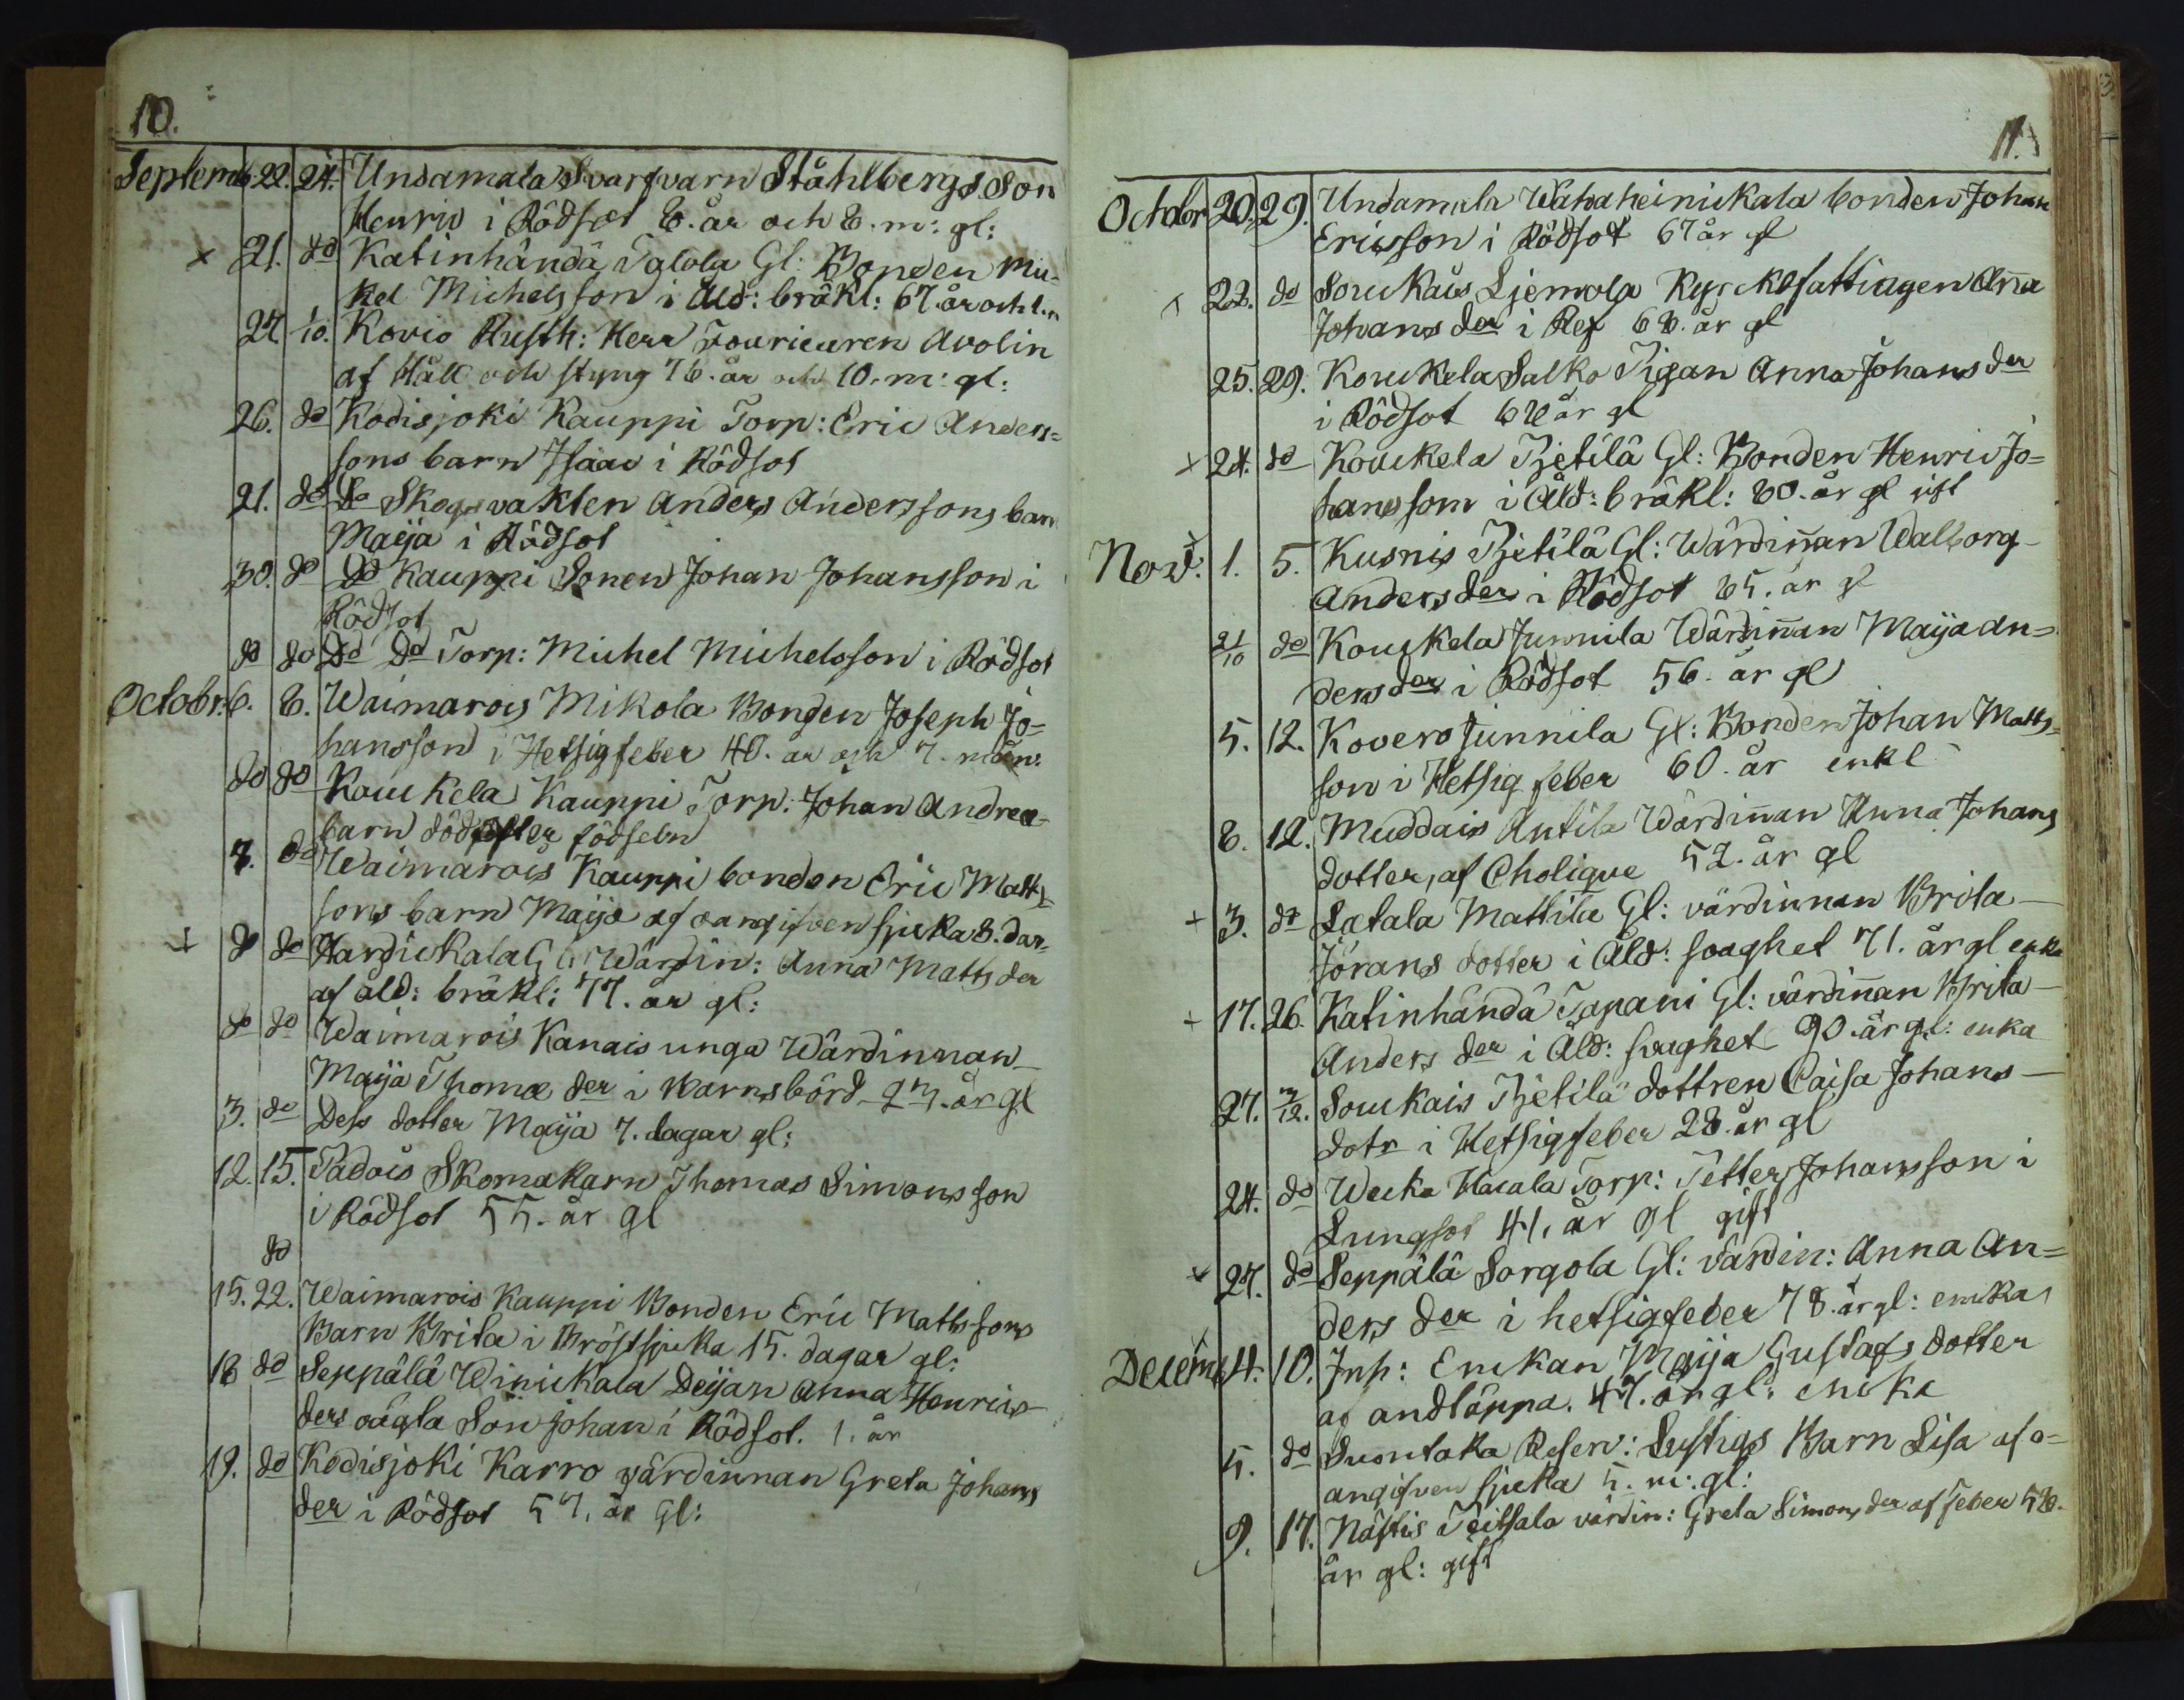 10.
Septemb: 22. 24. Undamala Svarfvarn Ståhlbergs Son
Henric i Rödsot 8. år och 8. m: gl:
x 21. do Katinhändä Talola Gl: Bonden Mi-
kel Michelsson i Åld: bräkl: 67 år och 1. m
27 1/10. Kovio Rusth: Herr Fourieuren Avolin
af Håll och styng 76. år och 10. m: gl:
26. do Kodisjoki Kauppi Torp: Eric Anders=
sons barn Isaac i Rödsot
21. do Do Skogsvakten Anders Anderssons barn
Maija i Rödsot
30. do Do Kauppi Sonen Johan Johansson i
Rödsot
do do Do Do Torp: Michel Michelsson i Rödsot
Octobr: 6. 8. Waimarois Mikola Bonden Joseph Jo=
hansson i Hetsigfeber 40. år och 7. mån:
do do Kouckela Kauppi Torp: Johan Andreæ
barn död efter födseln
7. do Waimarois Kauppi bonden Eric Matts=
sons barn Maija af oangifven sjuka 8. dar
+ do do Hardickala Gl: Wärdin: Anna Matts der
af åld: bräkl: 77. år gl:
do do Waimarois Kanais unga Wärdinnan
Maija Thomæ der i Barnsbörd 23. år gl
3. do Dess dotter Maija 7. dagar gl:
12. 15. Padois Skomakarn Thomas Simonsson
i Rödsot 55. år gl
do
15. 22. Waimarois Kauppi Bonden Eric Mattssons
Barn Brita i Bröstsjuka 15. dagar gl:
18 do Seppälä Winickala Deijan Anna Henrics
ders oägta Son Johan i Rödsot. 1. år
19. do Kodisjoki Karro wärdinnan Greta Johans
der i Rödsot 57. år gl:
11.
Octobr 20. 29. Undamala Wahaheinickala bonden Johan
Ericsson i Rödsot 67 år gl
x 22. do Souckais Liemola Kyrckofattingen Aña
Johans der i Ref 68. år gl
25. 29. Kouckela Salko Pigan Anna Johans der
i Rödsot 68 år gl
x 24. do Kouckela Pjetilä Gl: Bonden Henric Jo=
hansson i Åld: bräkl: 80. år gl gift
Nov. x 1. 5. Kusnis Pjetilä Gl: Wärdiñan Walborg
Anders der i Rödsot 85. år gl
21/10 do Kouckela Junnila Wärdiñan Maija An=
ders der i Rödsot 56. år gl
5. 12. Kovero Junnila Gl: Bonden Johan Matts=
son i Hetsig feber 60. år enkl:
8. 12. Muddais Antila Wärdiñan Anna Johans
dotter, af Cholique 52. år gl
+ 3. do Satala Mattila Gl: värdinnan Brita
Jörans dotter i Åld: svaghet 71. år gl enka
+ 17. 26. Katinhändä Tapani Gl: värdiñan Brita
Anders der i Åld: svaghet 90. år gl: enka
27. 3/12. Souckais Pjetilä dottren Caisa Johans
dotr i Hetsigfeber 28. år gl
24. do Torp: Petter Johansson i
Lungsot 41. år gl gift
x 27. do Seppälä Sorgola Gl: värdin: Anna An=
ders der i hetsigfeber 78. år gl: encka
Decemb x 4. 10. Inh: Enckan Maija Gustafs dotter
af andtäppa. 47. år gl: encka
5. do Suontaka Reserv: Lustigs Barn Lisa af o=
angifven sjuka 5. m: gl:
9. 17. Nästis Teitsala värdin: Greta Simons der af feber 58.
år gl: gift